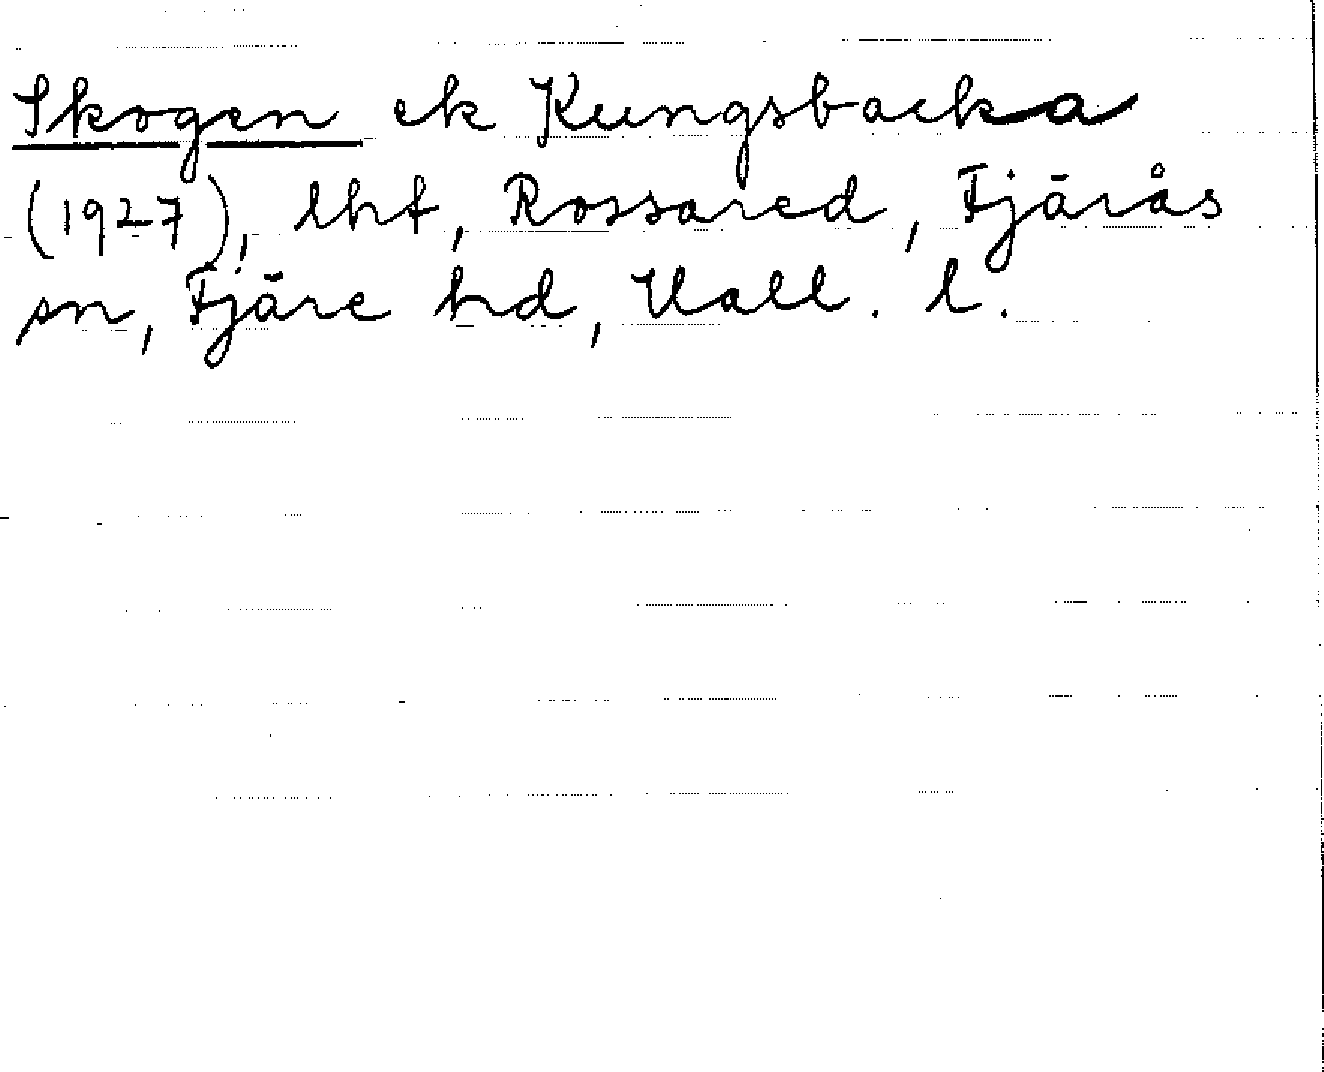 Skogen ek Kungsbacka
(1927), lht, Rossared, Fjärås
sn, Fjäre hd, Hall. l.